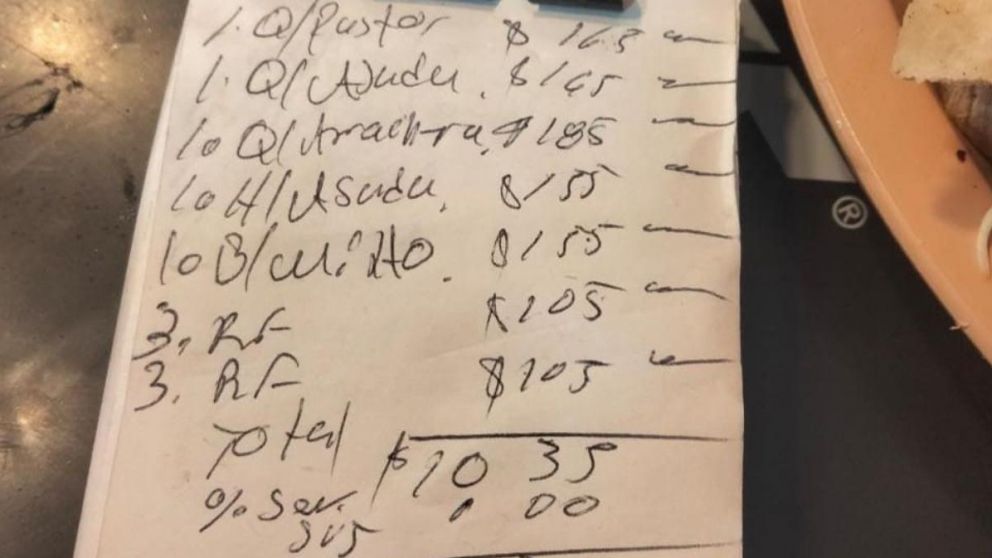 1. Q/Pastor $ 165
1. Q/Asada. $165
1o Q/Arrachera. $185
1o H/Asada. $155
1o B/urrito. $155
3. RF $105
3. RF $105
Total $10 35
% Ser. 00
®